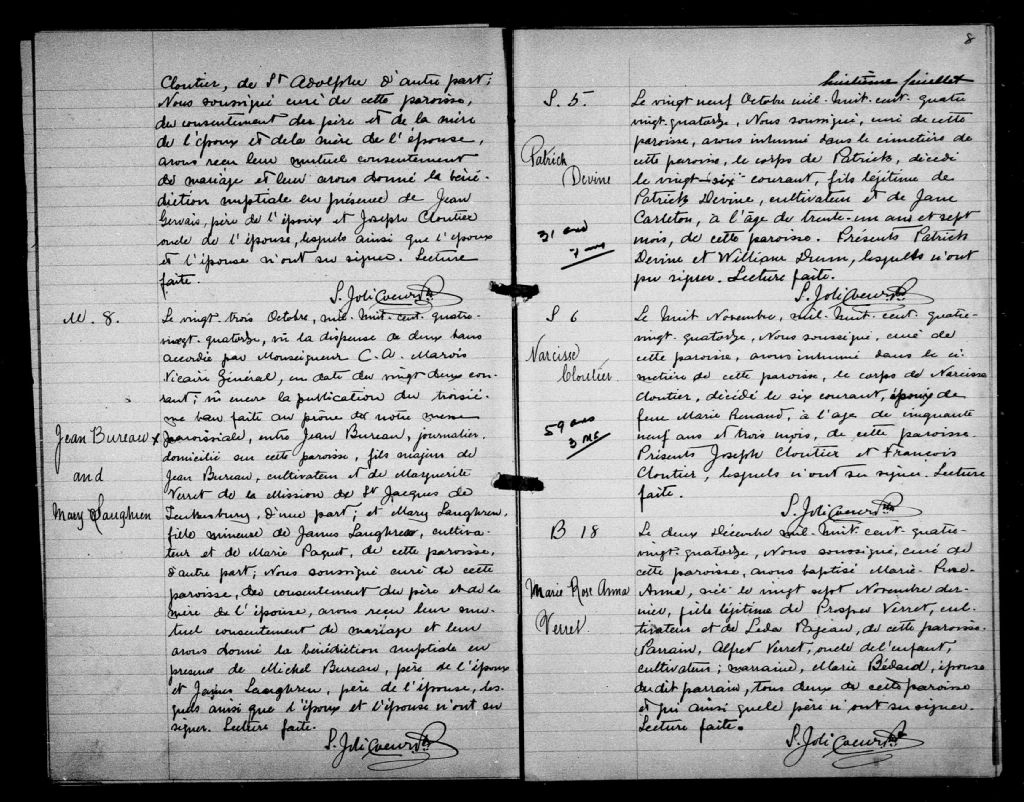 Cloutier, de St Adolphe d'autre part;
Nous soussigné curé de cette paroisse,
du consentement des père et de la mère
de l'époux et de la mère de l'épouse,
avons reçu leur mutuel consentement
de mariage et leur avons donné la béné-
diction nuptiale en présence de Jean
Gervais, père de l'époux et Joseph Cloutier
oncle de l'épouse, lesquels ainsi que l'époux
et l'épouse n'ont su signer. Lecture
faite.
S. Joli Coeur Ptre
M. 8.
Jean Bureau x
and
Mary Laughren
Le vingt-trois Octobre, mil-huit-cent-quatre-
vingt-quatorze, vu la dispense de deux bans
accordée par Monseigneur C. A. Marois
Vicaire Général, en date du vingt deux cou-
rant; vu encore la publication du troisiè-
me ban faite au prône de notre messe
paroissiale, entre Jean Bureau, journalier,
domicilié sur cette paroisse, fils majeur de
Jean Bureau, cultivateur et de Marguerite
Verret de la Mission de St Jacques de
Tewkesbury, d'une part; et Mary Laughren,
fille mineure de James Laughren, cultiva-
teur et de Marie Paquet, de cette paroisse,
d'autre part; Nous soussigné curé de cette
paroisse, du consentement du père et de la
mère de l'épouse, avons reçu leur mu-
tuel consentement de mariage et leur
avons donné la bénédiction nuptiale en
presence de Michel Bureau, père de l'époux
et James Laughren, père de l'épouse, les-
quels ainsi que l'époux et l'épouse n'ont su
signer. Lecture faite.
S. Joli Coeur Ptre
8
huitième feuillet
S. 5.
Patrick
Devine
31 ans
7 ms
Le vingt neuf Octobre mil-huit-cent-quatre
vingt-quatorze, Nous soussigné, curé de cette
paroisse, avons inhumé dans le cimetière de
cette paroisse, le corps de Patrick, décédé
le vingt-six courant, fils légitime de
Patrick Devine, cultivateur et de Jane
Carleton, à l'âge de trente-un ans et sept
mois, de cette paroisse. Présents Patrick
Devine et William Dunn, lesquels n'ont
pu signer. Lecture faite.
S. Joli Coeur Ptre
S 6
Narcisse
Cloutier.
59 ans
3 ms
Le huit Novembre, mil-huit-cent-quatre-
vingt-quatorze, Nous soussigné, curé de
cette paroisse, avons inhumé dans le ci-
metière de cette paroisse, le corps de Narcisse
Cloutier, décédé le six courant, époux de
feue Marie Renaud, à l'age de cinquante
neuf ans et trois mois, de cette paroisse.
Présents Joseph Cloutier et François
Cloutier, lesquels n'ont su signer. Lecture
faite.
S. Joli Coeur Ptre
B 18
Marie Rose Anna
Verret.
Le deux Décembre mil-huit-cent-quatre-
vingt-quatorze, Nous soussigné, curé de
cette paroisse, avons baptisé Marie-Rose-
Anna, née le vingt sept Novembre der-
nier, fille légitime de Prosper Verret, cul-
tivateur et de Leda Pageau, de cette paroisse.
Parrain, Alfred Verret, oncle de l'enfant,
cultivateur; marraine, Marie Bédard, épouse
du dit parrain, tous deux de cette paroisse
et qui ainsi que le père n'ont su signer.
Lecture faite.
S. Joli Coeur Ptre